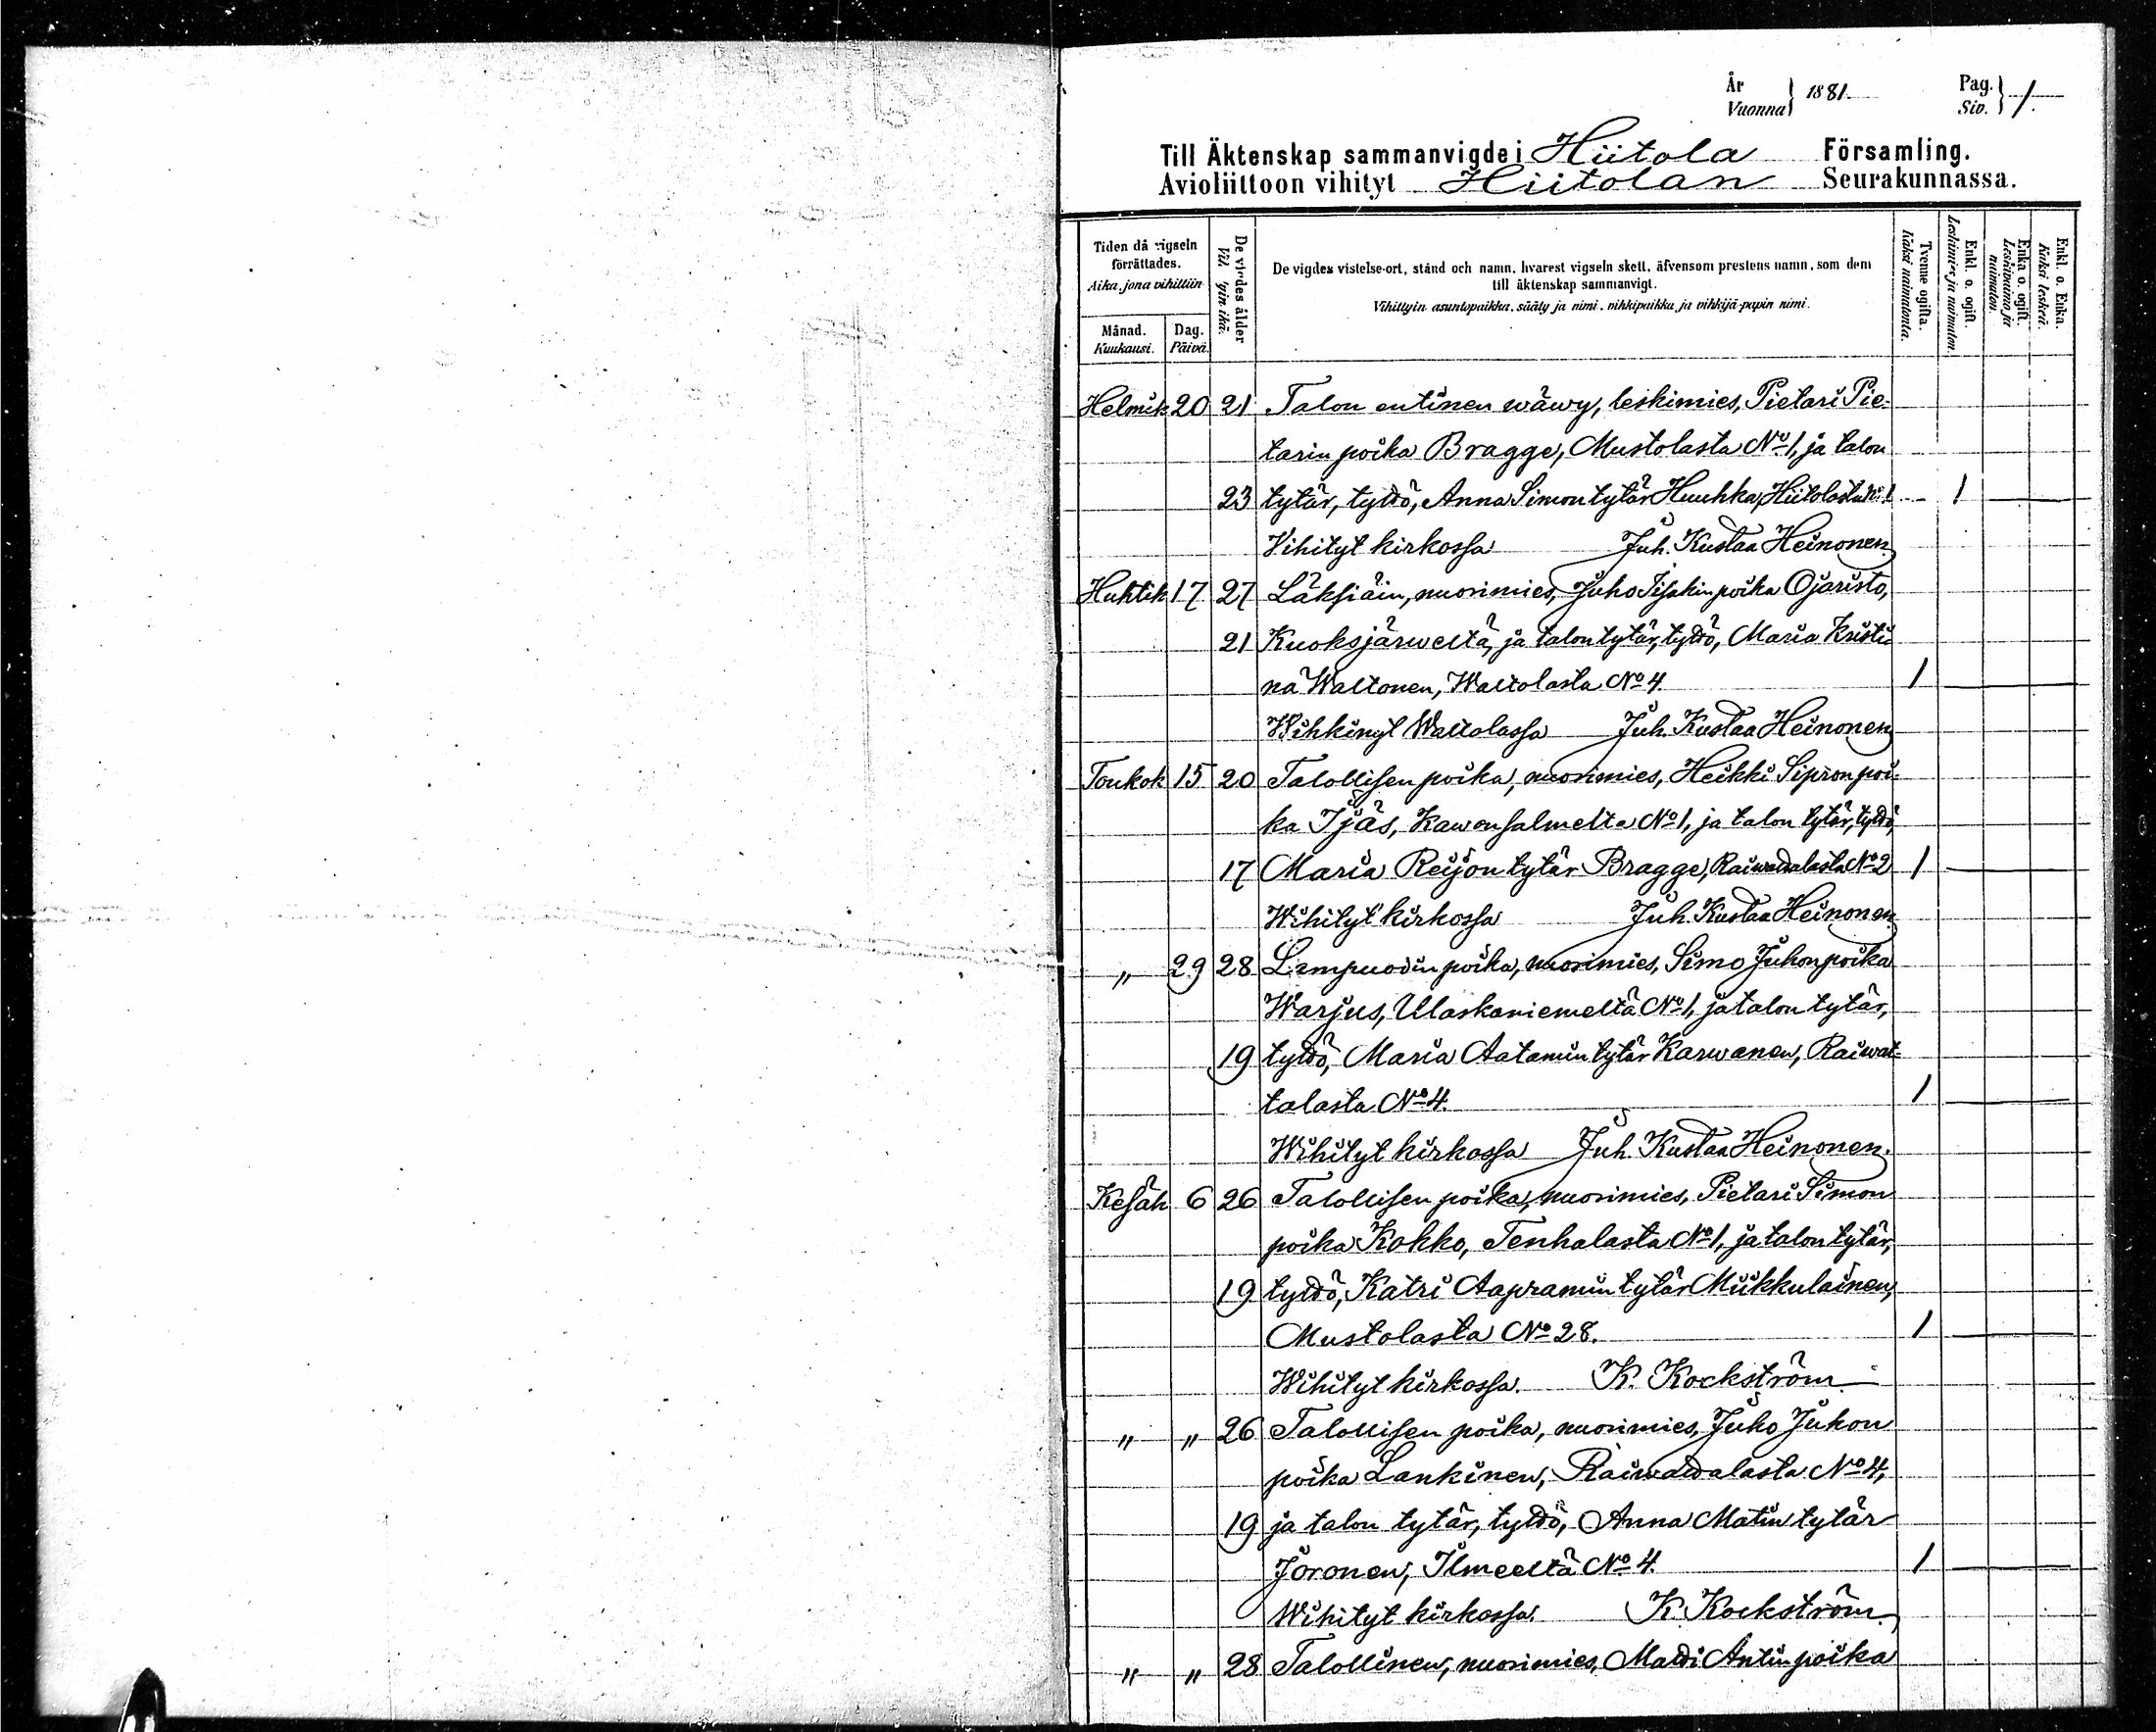 År
Vuonna } 1881. Pag.
Siv. } 1.
Till Äktenskap sammanvigde i Hiitola Församling.
Avioliittoon vihityt Hiitolan Seurakunnassa.
Tiden då vigseln
förrättades.
Aika, jona vihittiin
Månad.
Kuukausi.
Dag.
Päivä.
De vigdes ålder
De vigdes vistelse-ort, stånd och namn, hvarest vigseln skett, äfvensom prestens namn, som dem
till äktenskap sammanvigt.
Vihittyin asuntopaikka, sääty ja nimi, vihkipaikka, ja vihkijä-papin nimi.
Tvenne ogifta.
Kaksi naimatonta.
Enkl. o. ogift.
Leskimies ja naimaton.
Enka o. ogift.
Leskivaimo ja
naimaton.
Enkl. o. Enka.
Kaksi leskeä.
Helmik 20 21 Talon entinen wäwy, leskimies, Pietari Pie-
tarin poika Bragge, Mustolasta No 1, ja talon
23 tytär, tyttö, Anna Simon tytär Huuhka, Hiitolasta No 1 1
Vihityt kirkossa Juh. Kustaa Heinonen
Huhtik 17 27 Läksiäin, nuorimies, Juho Iisakin poika Ojaristo,
21 Kuoksjärweltä, ja talon tytär, tyttö, Maria Kristi-
na Waltonen, Waltolasta No 4. 1
Wihkinyt Waltolassa Juh. Kustaa Heinonen
Toukok 15 20 Talollisen poika, nuorimies, Heikki Sipron poi-
ka Ijäs, Kawonsalmelta No 1, ja talon tytär, tyttö,
17 Maria Reijon tytär Bragge, Raiwattalasta No 2 1
Wihityt kirkossa Juh. Kustaa Heinonen
" 29 28 Lampuodin poika, nuorimies, Simo Juhon poika
Warjus, Ulaskaniemeltä No 1, ja talon tytär,
19 tyttö, Maria Aatamin tytär Karwanen, Raiwat-
talasta No 4. 1
Wihityt kirkossa Juh. Kustaa Heinonen.
Kesäk 6 26 Talollisen poika, nuorimies, Pietari Simon
poika Kokko, Tenhalasta No 1, ja talon tytär,
19 tyttö, Katri Aapramin tytär Miikkulainen,
Mustolasta No 28. 1
Wihityt kirkossa. K. Kockström
" " 26 Talollisen poika, nuorimies, Juho Juhon
poika Lankinen, Raiwattalasta No 4,
19 ja talon tytär, tyttö, Anna Matin tytär
Joronen, Ilmeeltä No 4. 1
Wihityt kirkossa. K. Kockström
" " 28 Talollinen, nuorimies, Matti Antin poika